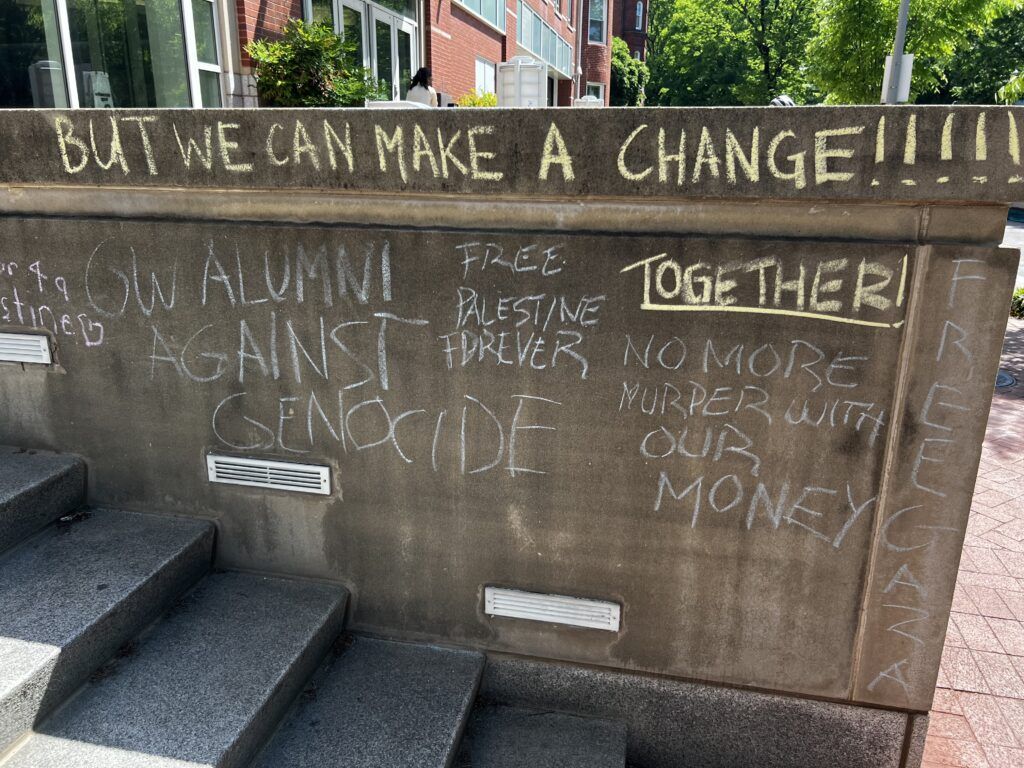 BUT WE CAN MAKE A CHANGE!!!!!!
GW ALUMNI
AGAINST
GENOCIDE
FREE
PALESTINE
FOREVER
TOGETHER!
NO MORE
MURDER WITH
OUR
MONEY
FREE GAZA